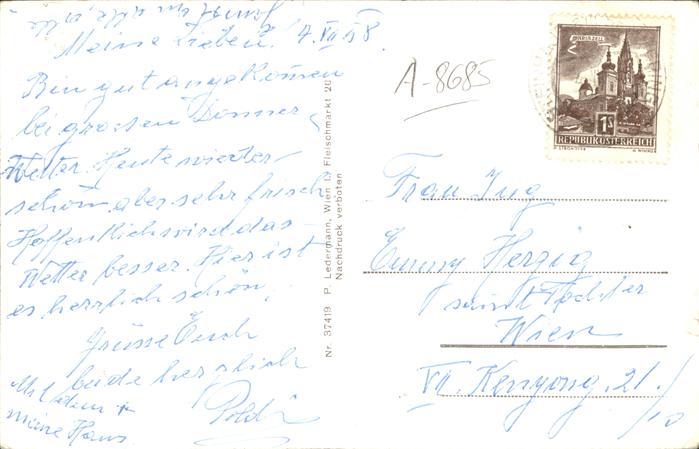 Meine Lieben! 7. VII 58
Bin gut angekomen
bei grossen Donner
Wetter. Heute wieder
schön, aber sehr frisch
Hoffentlich wird das
Wetter besser. Hier ist
es herrlich schön,
Grüsse Euch
beide herzlich
Poldi
meine Hans
Nr. 37419 P. Ledermann, Wien I, Fleischmarkt 20
Nachdruck verboten
A-8685
MARIAZELL
1S
REPUBLIK ÖSTERREICH
Frau Ing
Emmy Herzig
samt Tochter
Wien
VII. Kenyong. 21./10